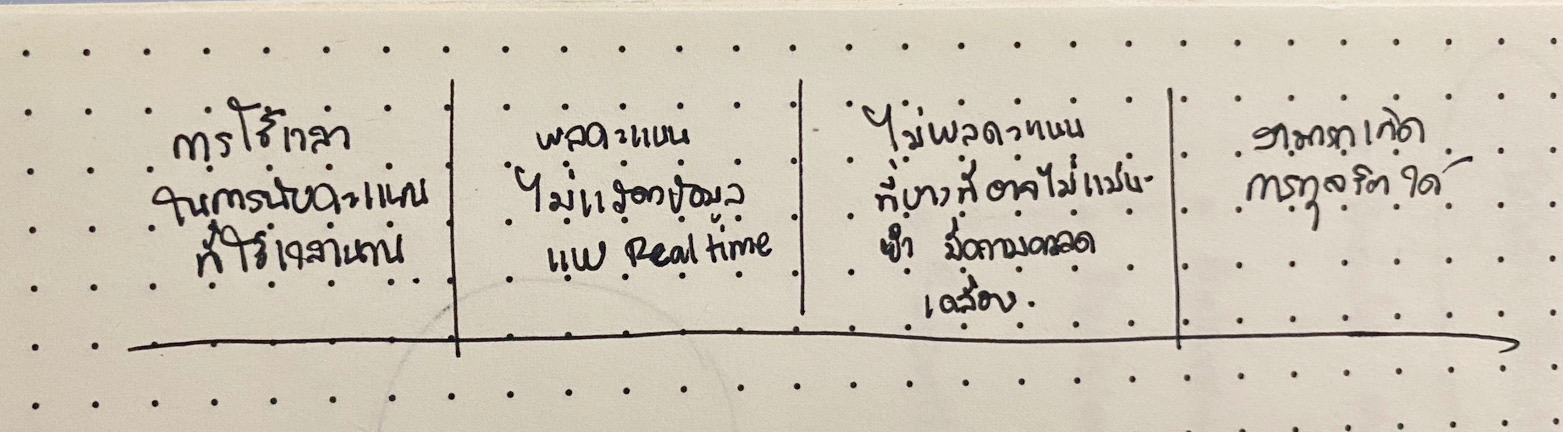 การใช้เวลา
ในการนับคะแนน
ที่ใช้เวลานาน
ผลคะแนน
ไม่แจ้งข้อมูล
แบบ Real time
ไม่ผลคะแนน
ที่บางที่อาจไม่แม่น-
ยำ มีความคลาด
เคลื่อน.
สามารถเกิด
การทุจริตได้